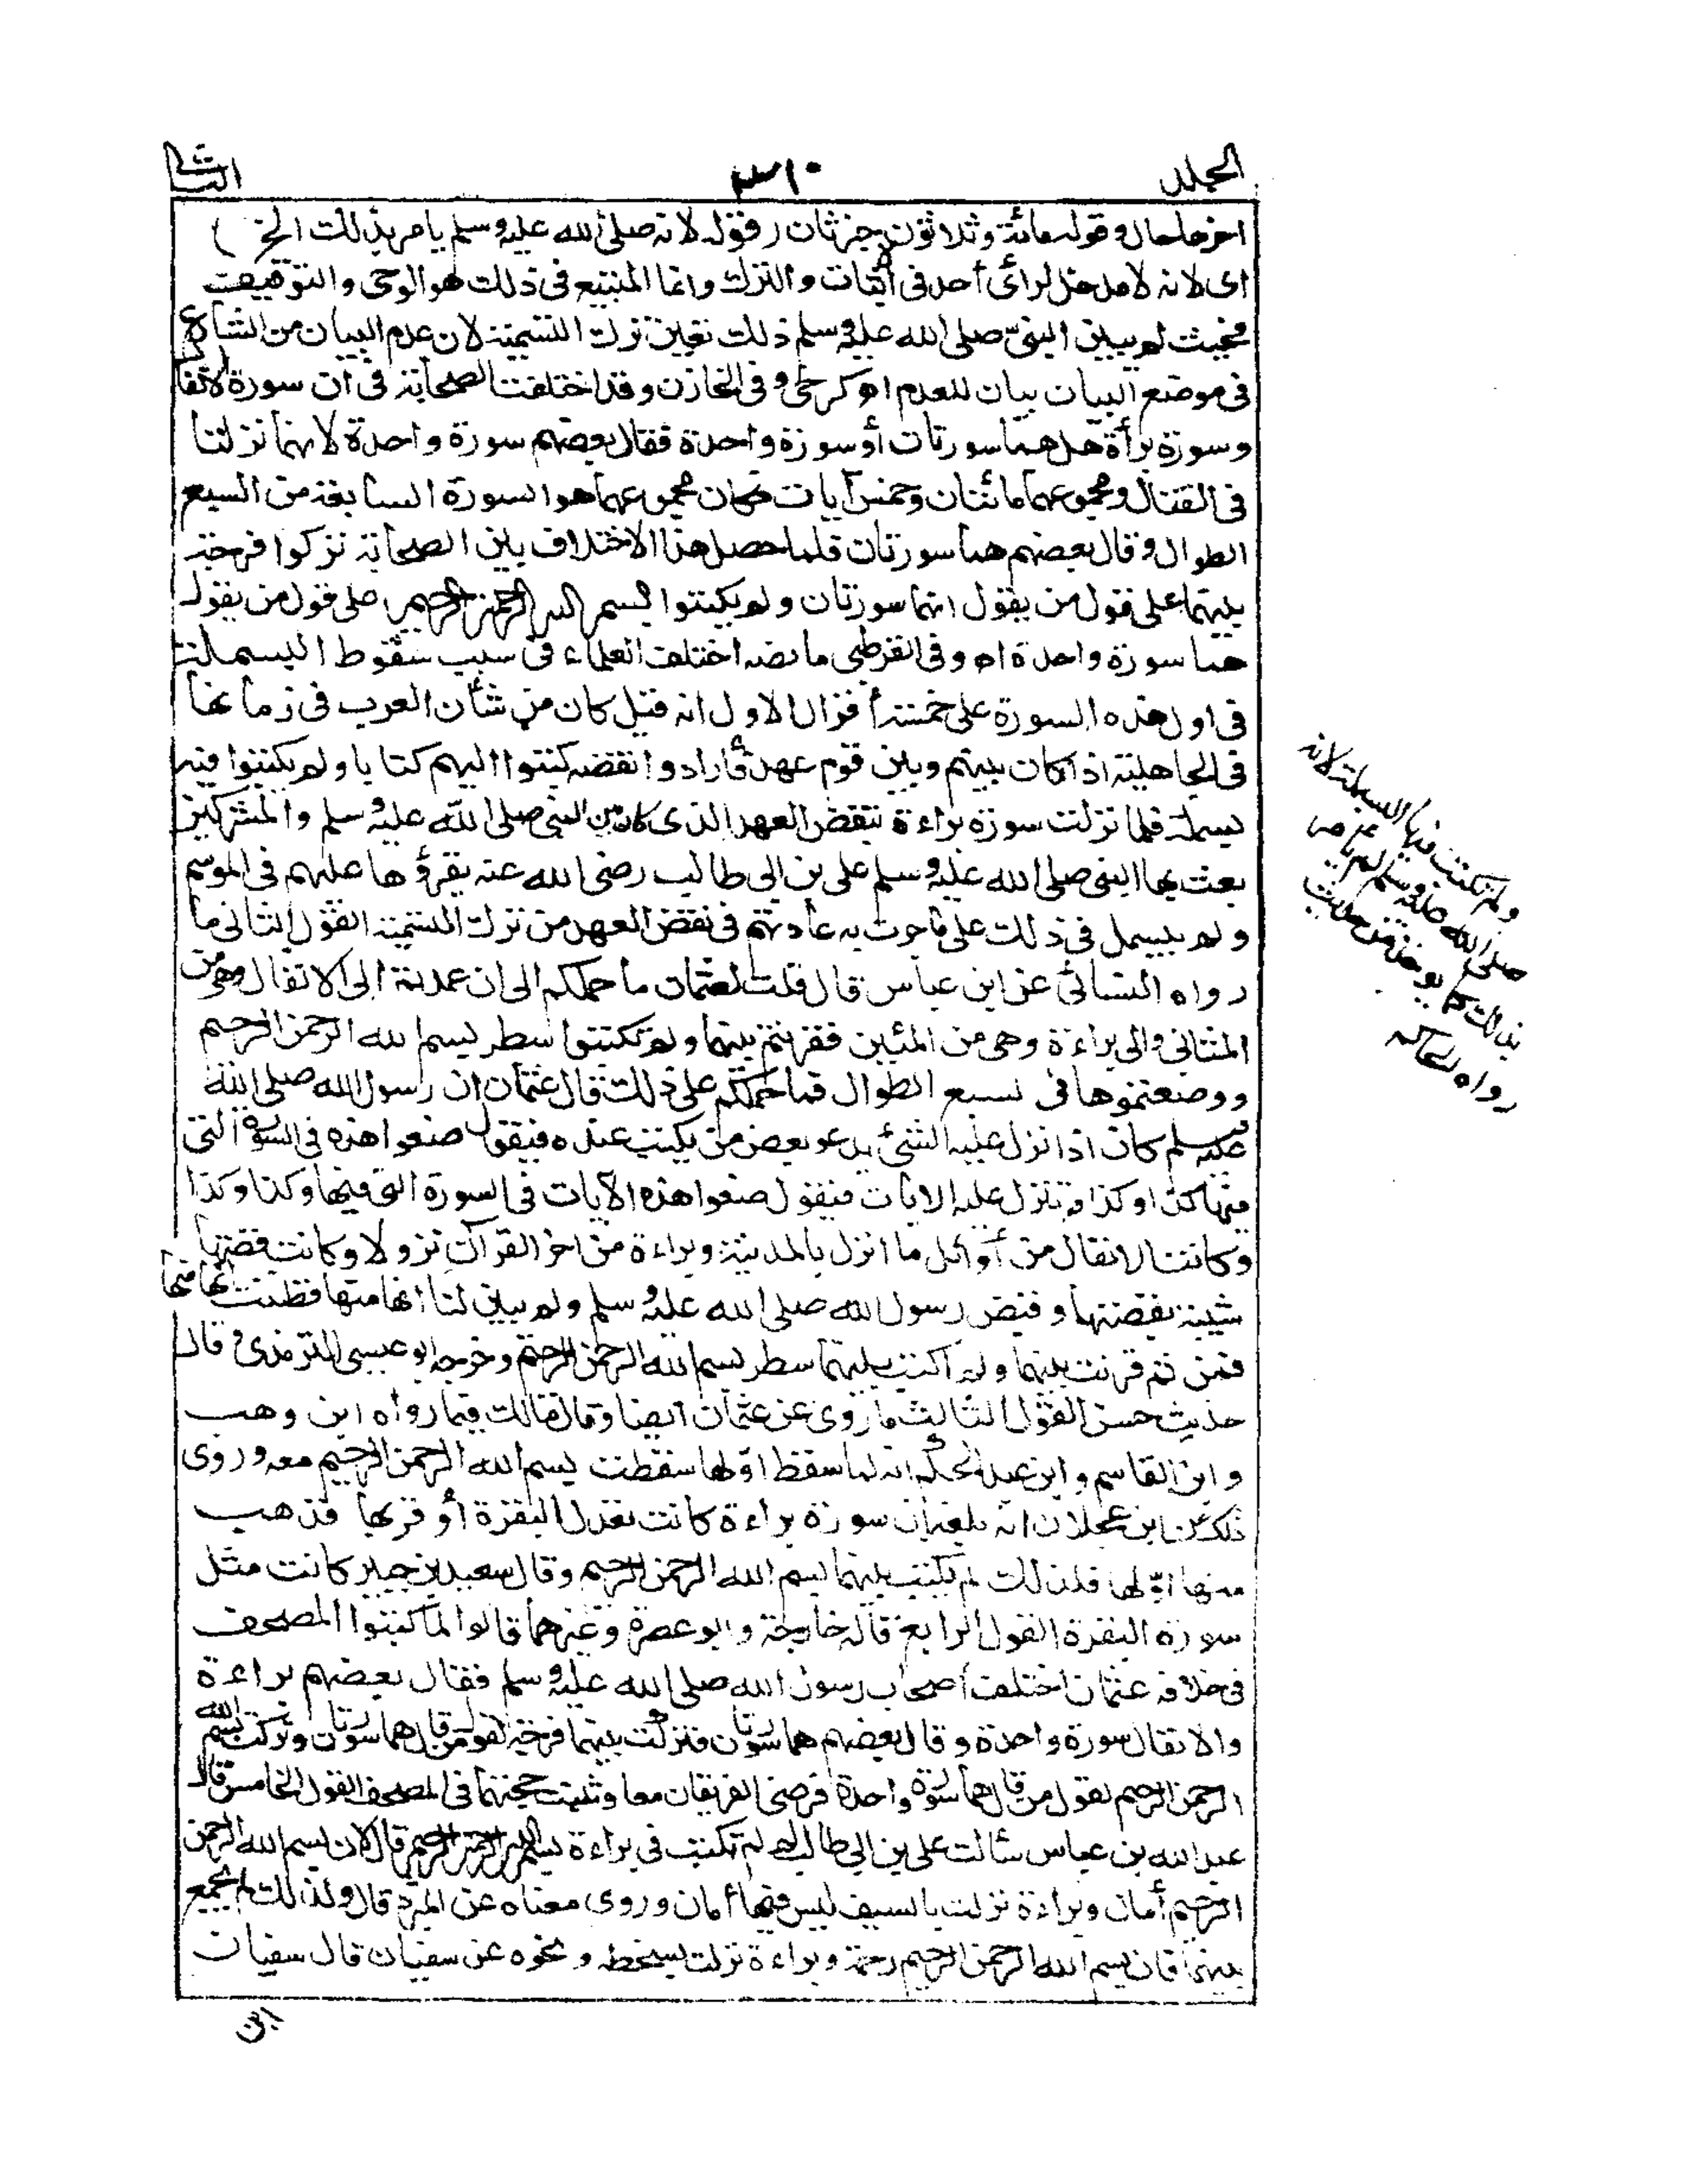 الجلد
٣١٠
الثانى
اخرها حال وقوله مائة وثلاثون جزء ثان (قوله لانه صلى الله عليه وسلم يامر بذلك الخ)
اى لانه لا مدخل لرائ أحد فى اثبات والترك وانما المتبع فى ذلك هو الوحى والتوقيف
فحيث لم يبين النبى صلى الله عليه وسلم ذلك تعين ترك التسمية لان عدم البيان من الشارع
فى موضع البيان بيان للعدم اه كرخى وفى الخازن وقد اختلفت الصحابة فى ان سورة الانفال
وسورة برأة هل هما سورتان أو سورة واحدة فقال بعضهم سورة واحدة لانهما نزلتا
فى القتال ومجموعهما مائتان وخمس آيات فكان مجموعهما هو السورة السابعة من السبع
الطوال وقال بعضهم هما سورتان فلما حصل هذا الاختلاف بين الصحابة تركوا فرجة
بينهما على قول من يقول انهما سورتان ولم يكتبوا بسم الله الرحمن الرحيم على قول من يقول
هما سورة واحدة اه وفى القرطبى ما نصه اختلف العلماء فى سبب سقوط البسملة
فى اول هذه السورة على خمسة أقوال الاول انه قيل كان من شأن العرب فى زمانها
فى الجاهلية اذا كان بينهم وبين قوم عهد فأرادوا نقضه كتبوا اليهم كتابا ولم يكتبوا فيه
بسملة فلما نزلت سورة براءة بنقض العهد الذى كان بين النبى صلى الله عليه وسلم والمشركين
بعث بها النبى صلى الله عليه وسلم على بن ابى طالب رضى الله عنه يقرؤها عليهم فى الموسم
ولم يبسمل فى ذلك على ما جرت به عادتهم فى نقض العهد من ترك التسمية القول الثانى ما
رواه النسائى عن ابن عباس قال قلت لعثمان ما حملكم الى ان عمدتم الى الانفال وهى من
المثانى والى براءة وهى من المئين فقرنتم بينهما ولم تكتبوا سطر بسم الله الرحمن الرحيم
ووضعتموها فى سبع الطوال فما حملكم على ذلك قال عثمان ان رسول الله صلى الله
عليه وسلم كان اذا نزل عليه الشئ يدعو بعض من يكتب عنده فيقول ضعوا هذه فى السورة التى
فيها كذا وكذا وتنزل عليه الايات فيقول ضعوا هذه الآيات فى السورة التى فيها وكذا وكذا
وكانت الانفال من أوائل ما انزل بالمدينة وبراءة من اخر القرآن نزولا وكانت قصتها
شبيهة بقصتها وقبض رسول الله صلى الله عليه وسلم ولم يبين لنا انها منها فظننت انها منها
فمن ثم قرنت بينهما ولم اكتب بينهما سطر بسم الله الرحمن الرحيم وخرجه ابو عيسى الترمذى وقال
حديث حسن القول الثالث ما روى عن عثمان ايضا وقال مالك فيما رواه ابن وهب
وابن القاسم وابن عبد الحكم انه لما سقط اولها سقطت بسم الله الرحمن الرحيم معه وروى
ذلك عن ابن عجلان انه بلغه ان سورة براءة كانت تعدل البقرة أو قربها فذهب
منها اولها فلذلك لم يكتب بينهما بسم الله الرحمن الرحيم وقال سعيد بن جبير كانت مثل
سورة البقرة القول الرابع قاله خارجة وابو عصمة وغيرهما قالوا لما كتبوا المصحف
فى خلافة عثمان اختلف أصحاب رسول الله صلى الله عليه وسلم فقال بعضهم براءة
والانفال سورة واحدة وقال بعضهم هما سورتان فتركت بينهما فرجة لقول من قال هما سورتان وتركت بسم الله
الرحمن الرحيم لقول من قال هما سورة واحدة فرضى الفريقان معا وثبتت حجتهما فى المصحف القول الخامس قال
عبد الله بن عباس سألت على بن ابى طالب لم لم تكتب فى براءة بسم الله الرحمن الرحيم قال لان بسم الله الرحمن
الرحيم أمان وبراءة نزلت بالسيف ليس فيها أمان وروى معناه عن المبرد قال ولذلك لم يجمع
بينهما فان بسم الله الرحمن الرحيم رحمة وبراءة نزلت بسخطه ونحوه عن سفيان قال سفيان
ابن
ولم تكتب فيها البسملة لانه
صلى الله عليه وسلم لم يامر
بذلك كما يوخذ من حديث
رواه الحاكم